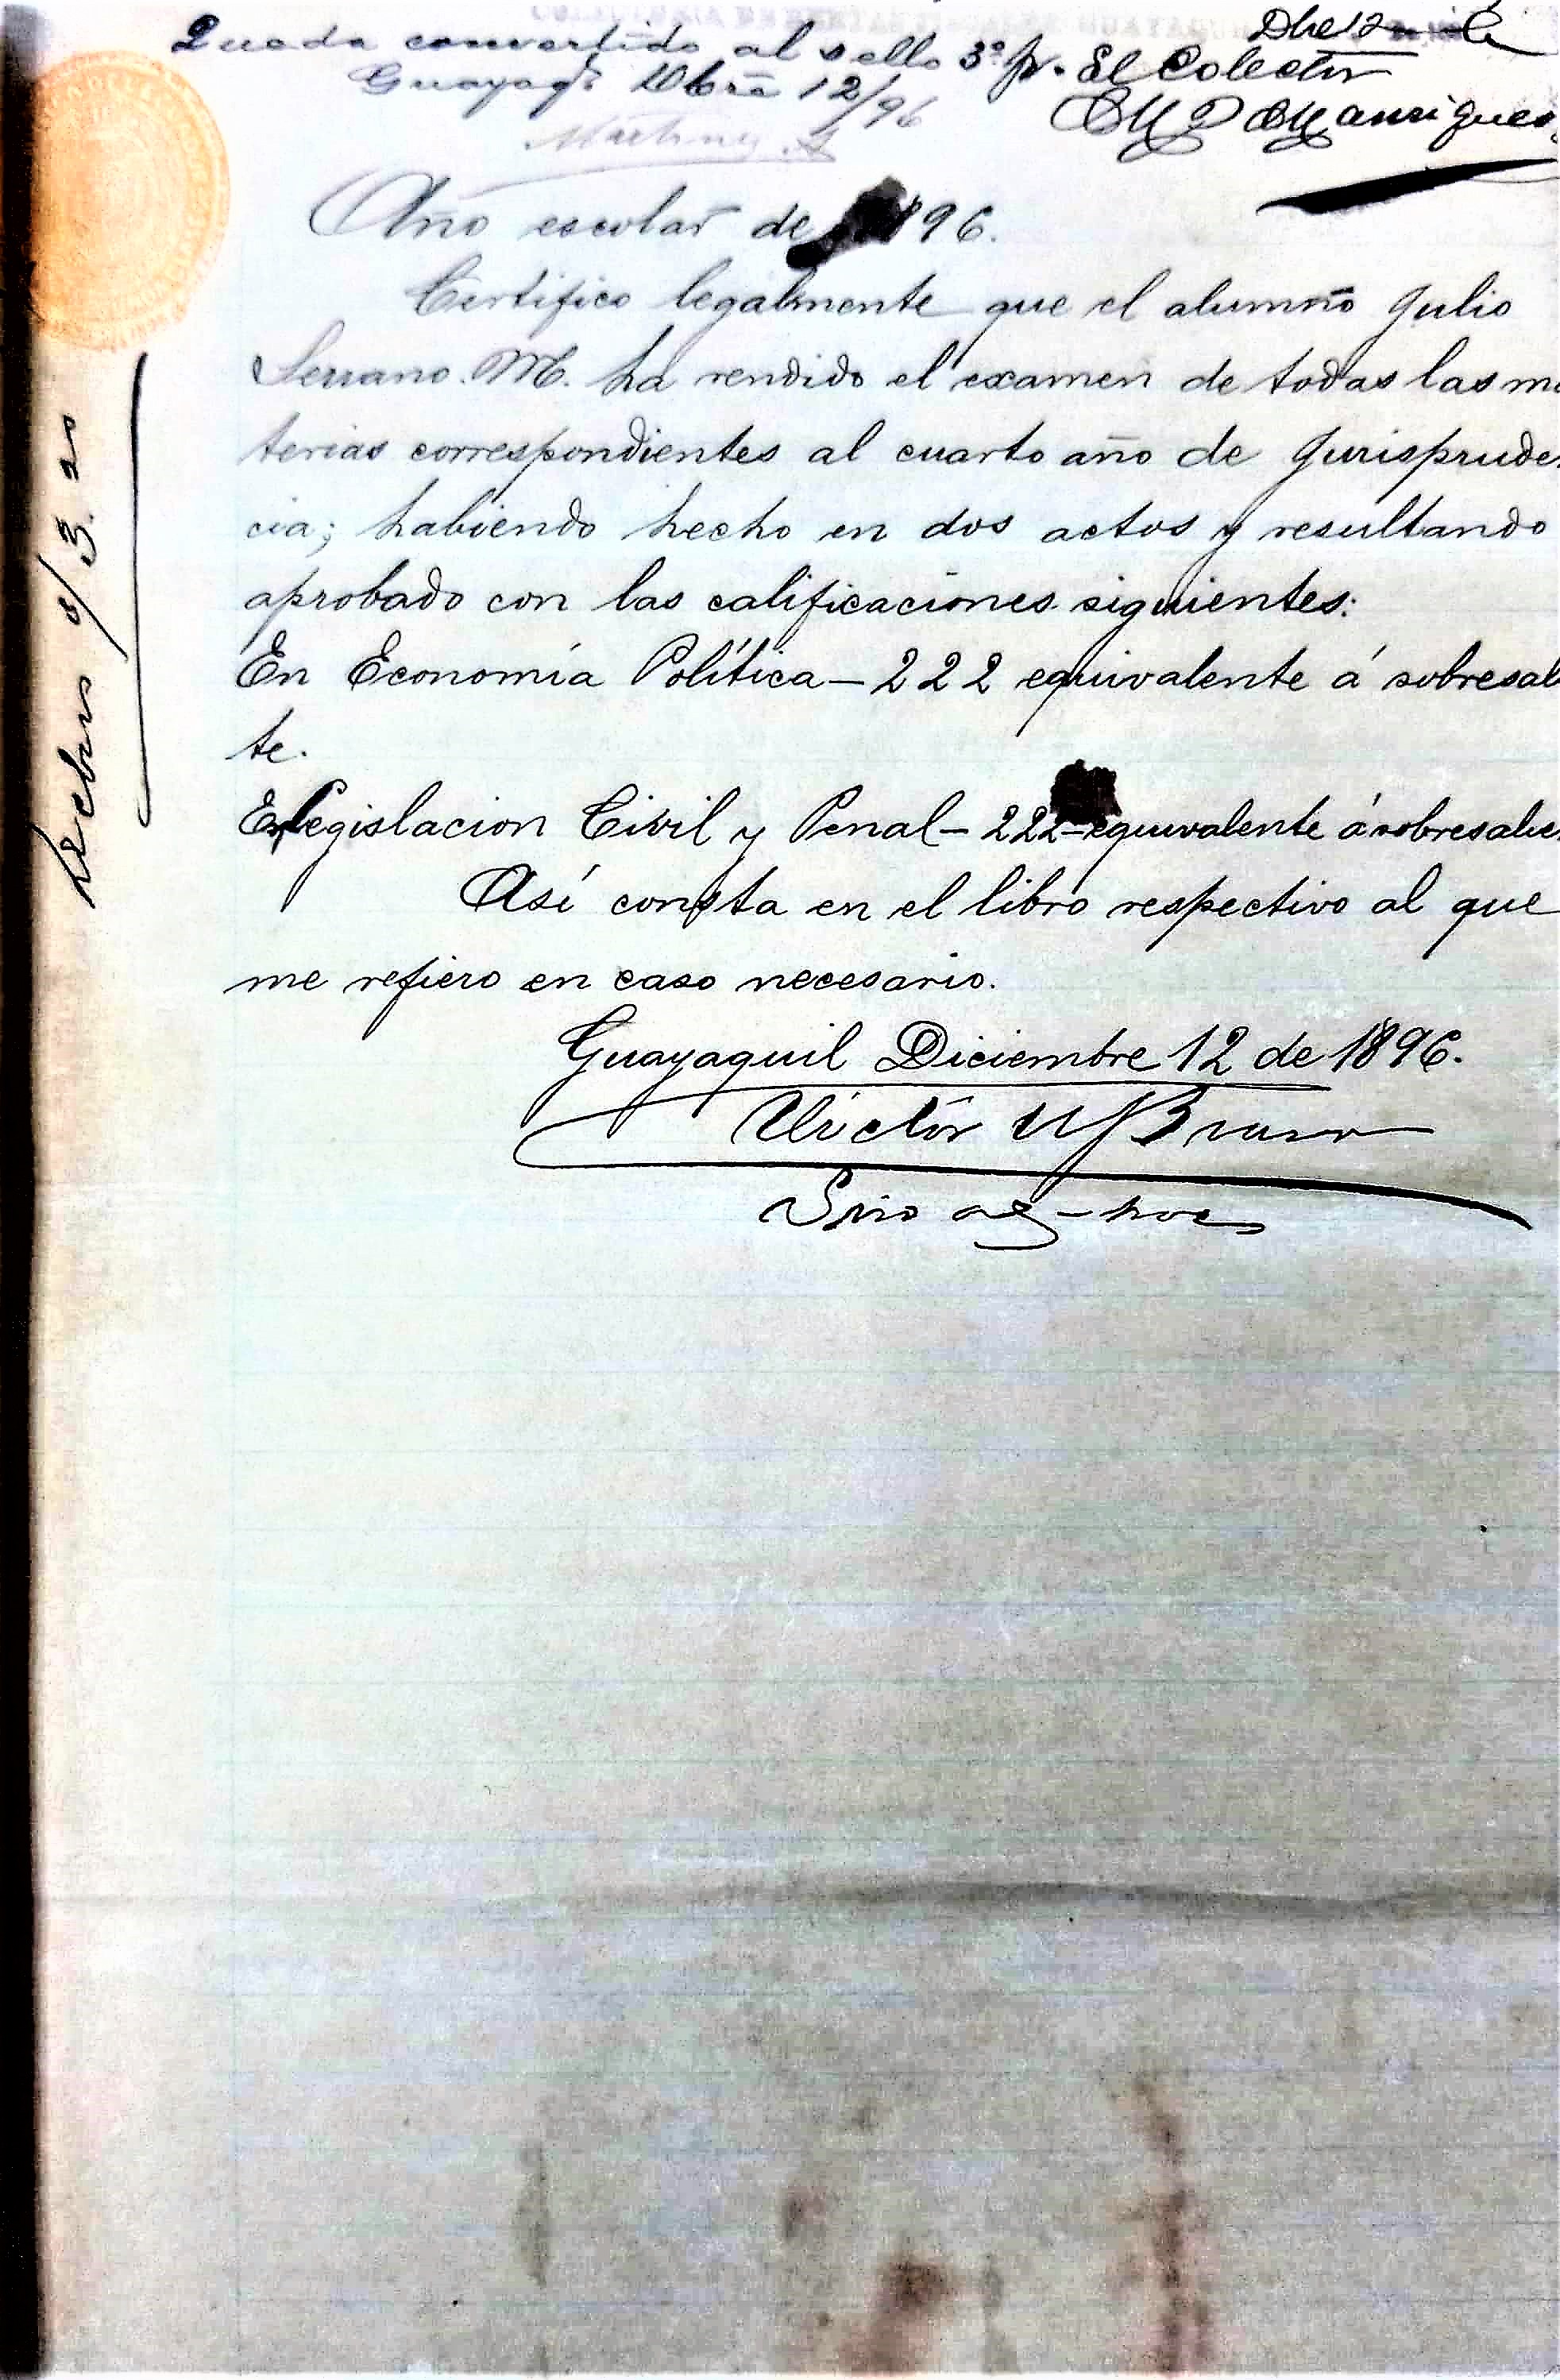 Queda convertido al sello 3º pr. El Colector
Guayaqº Dbre 12/96
Dbe 12
M P Manrique
Año escolar de 1896.
Certifico legalmente que el alumno Julio
Serrano. M. ha rendido el examen de todas las ma
terias correspondientes al cuarto año de Jurispruden
cia; habiendo hecho en dos actos y resultando
aprobado con las calificaciones siguientes:
En Economía Política – 222 equivalente á sobresalien
te.
En Legislacion Civil y Penal – 222 – equivalente á sobresalien
Así consta en el libro respectivo al que
me refiero en caso necesario.
Guayaquil Diciembre 12 de 1896.
Víctor M
Srio ad-hoc